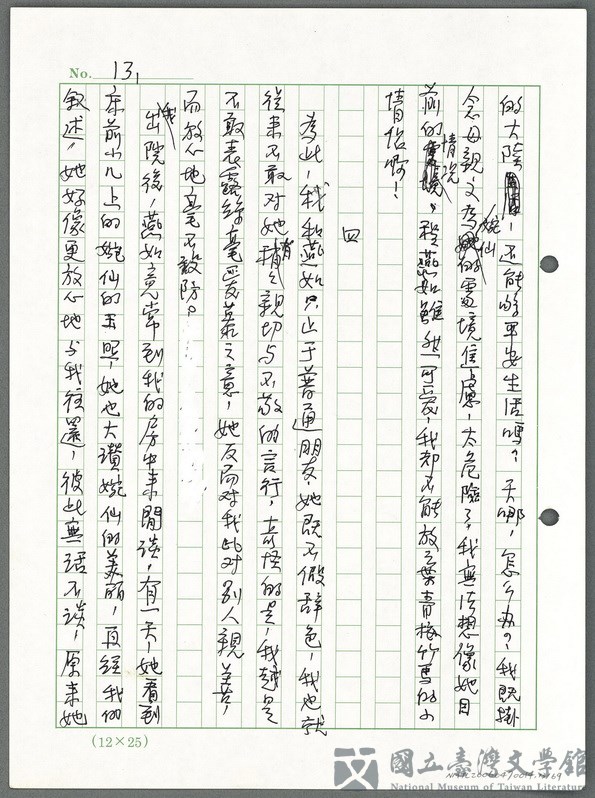 No. 13,
的大陸,还能夠平安生活嗎?天哪,怎么办?我既掛
念母親,又為婉仙的處境焦慮,太危險了,我無法想像她目
前的情况。程燕如雖然可愛,我却不能放棄青梅竹馬的小
情侣啊!
四
為此,我和燕如只止于普通朋友,她既不假辞色,我也就
從来不敢对她有親切与不敬的言行,奇怪的是,我越是
不敢表露絲毫愛慕之意,她反而对我比对別人親善,
而放心地毫不設防。
我出院後,燕如竟常到我的房中来閒談,有一天,她看到
床前小几上的婉仙的玉照,她也大讚婉仙的美丽,再經我的
敘述,她好像更放心地与我往還,彼此無話不談,原来她
(12×25)
國立臺灣文學館
National Museum of Taiwan Literature